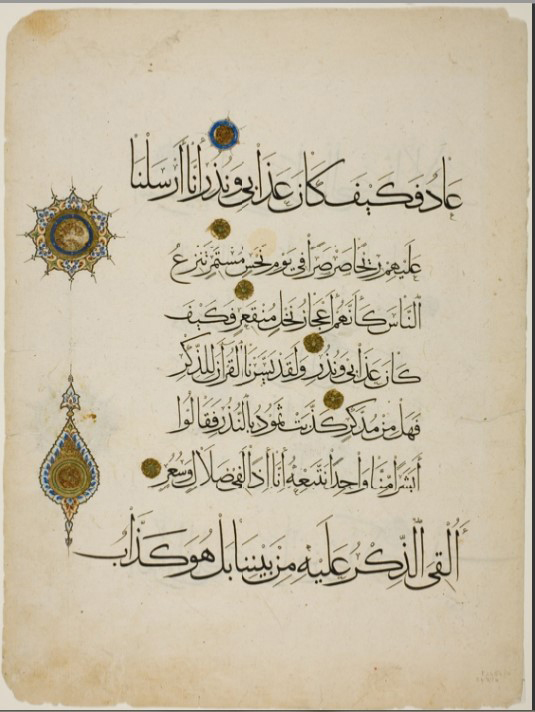 عَادٌ فَكَيْفَ كَانَ عَذَابِي وَنُذُرِ إِنَّا أَرْسَلْنَا
عَلَيْهِمْ رِيحًا صَرْصَرًا فِي يَوْمِ نَحْسٍ مُسْتَمِرٍّ تَنْزِعُ
النَّاسَ كَأَنَّهُمْ أَعْجَازُ نَخْلٍ مُنْقَعِرٍ فَكَيْفَ
كَانَ عَذَابِي وَنُذُرِ وَلَقَدْ يَسَّرْنَا الْقُرْآنَ لِلذِّكْرِ
فَهَلْ مِنْ مُدَّكِرٍ كَذَّبَتْ ثَمُودُ بِالنُّذُرِ فَقَالُوا
أَبَشَرًا مِنَّا وَاحِدًا نَتَّبِعُهُ إِنَّا إِذًا لَفِي ضَلَالٍ وَسُعُرٍ
أَأُلْقِيَ الذِّكْرُ عَلَيْهِ مِنْ بَيْنِنَا بَلْ هُوَ كَذَّابٌ